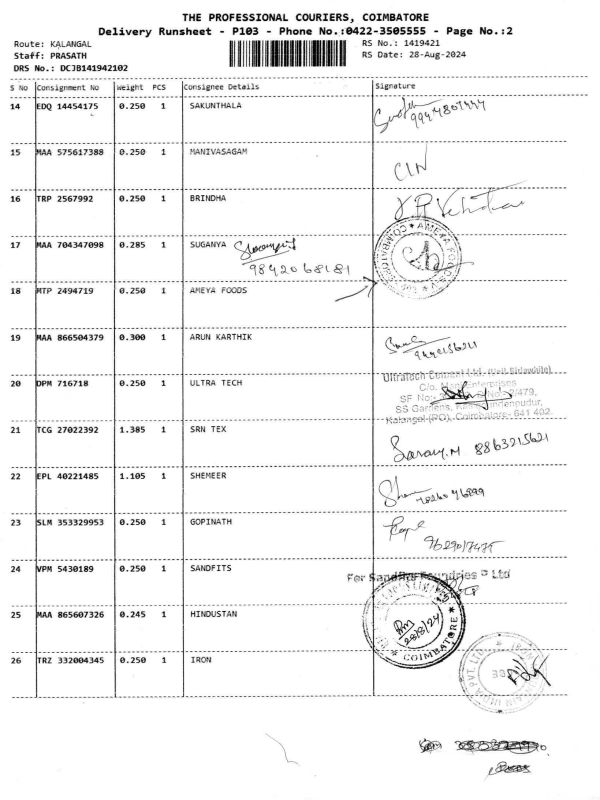 THE PROFESSIONAL COURIERS, COIMBATORE
Delivery Runsheet - P103 - Phone No.:0422-3505555 - Page No.:2
Route: KALANGAL RS No.: 1419421
Staff: PRASATH RS Date: 28-Aug-2024
DRS No.: DCJB141942102
S No Consignment No Weight PCS Consignee Details Signature
14 EDQ 14454175 0.250 1 SAKUNTHALA
15 MAA 575617388 0.250 1 MANIVASAGAM
CIN
16 TRP 2567992 0.250 1 BRINDHA
17 MAA 704347098 0.285 1 SUGANYA
9842068181
18 MTP 2494719 0.250 1 AMEYA FOODS
19 MAA 866504379 0.300 1 ARUN KARTHIK
20 DPM 716718 0.250 1 ULTRA TECH
Kalangal (PO), Coimbatore- 641 402.
21 TCG 27022392 1.385 1 SRN TEX
Saran.M 8863215621
22 EPL 40221485 1.105 1 SHEMEER
23 SLM 353329953 0.250 1 GOPINATH
24 VPM 5430189 0.250 1 SANDFITS
For Sandfits Foundries P Ltd
25 MAA 865607326 0.245 1 HINDUSTAN
28/8/24
COIMBATORE
26 TRZ 332004345 0.250 1 IRON